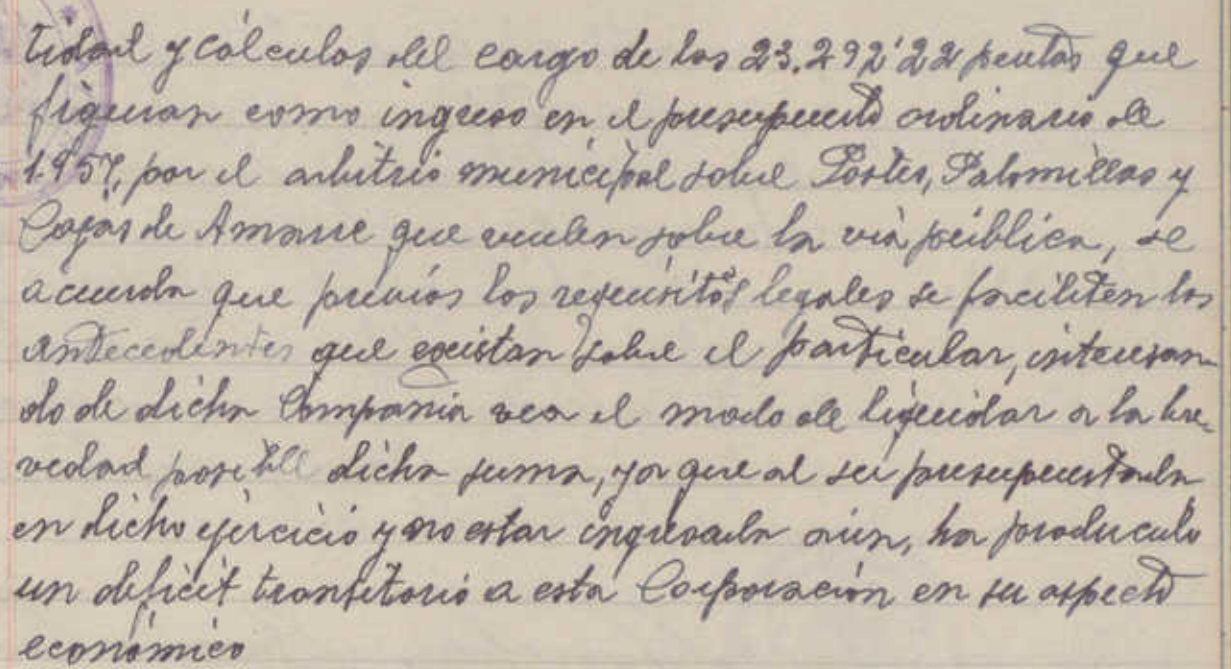 tidad y cálculos del cargo de las 23.292'22 pesetas que
figuran como ingreso en el presupuesto ordinario de
1.957, por el arbitrio municipal sobre Postes, Palomillas y
Cajas de Amarre que vuelen sobre la via pública, se
acuerda que previos los requisitos legales se faciliten los
antecedentes que existan sobre el particular, interesan-
do de dicha Compañia vea el modo de liquidar a la bre-
vedad posible dicha suma, ya que al ser presupuestada
en dicho ejercicio y no estar ingresada aún, ha producido
un deficit transitorio a esta Corporación en su aspecto
económico